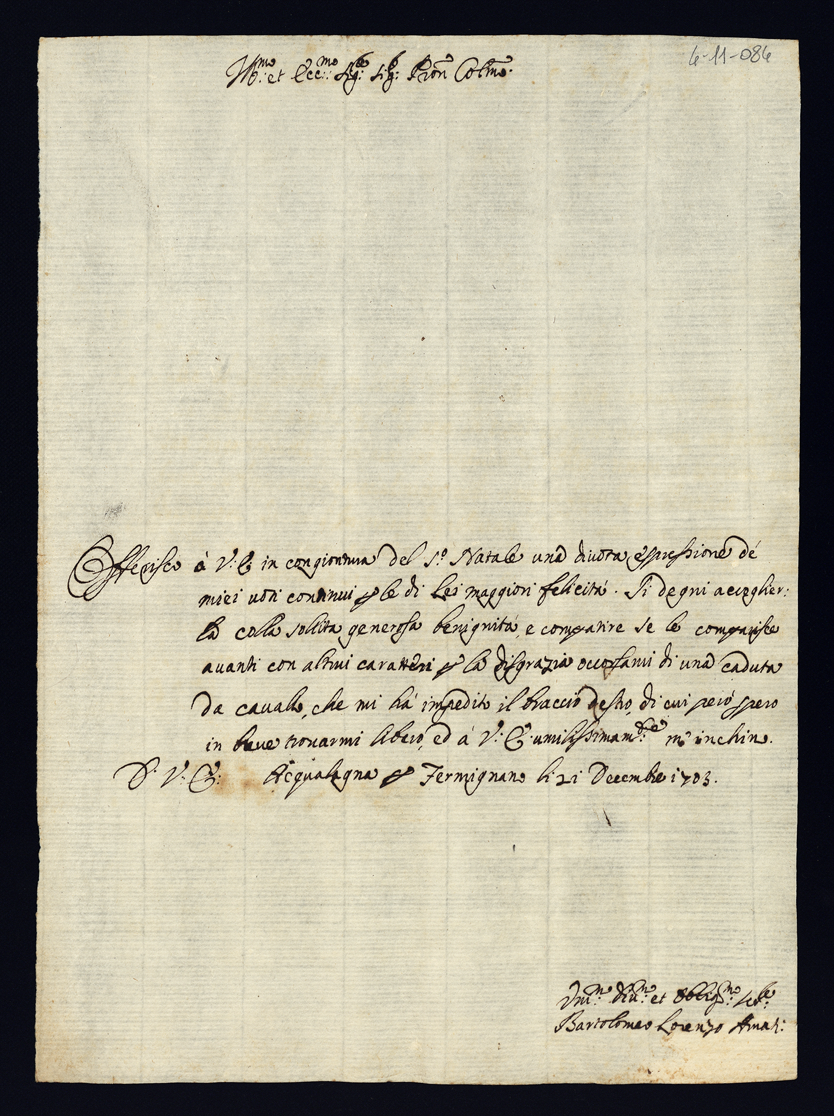 4-11-086
Ill:mo et Ecc:mo Sig:re Sig:r Pron Colmo.
Offerisco à V: E: in congiontura del S:o Natale una divota espressione dé
miei voti continui p le di Lei maggiori felicità. Si degni accoglier:
la colla sollita generosa benignità e compatire se le comparisce
avanti con altrui caratteri p la disgrazia occorsami di una caduta
da cavallo, che mi hà impedito il braccio destro, di cui però spero
in breve trovarmi libero, ed à V: E: umilissimam:te m'inchino.
D: V: E: Acqualagna p Fermignano li 21 Decembre 1703.
Um:mo Div:mo et Obblig:mo Ser:re
Bartolomeo Lorenzo